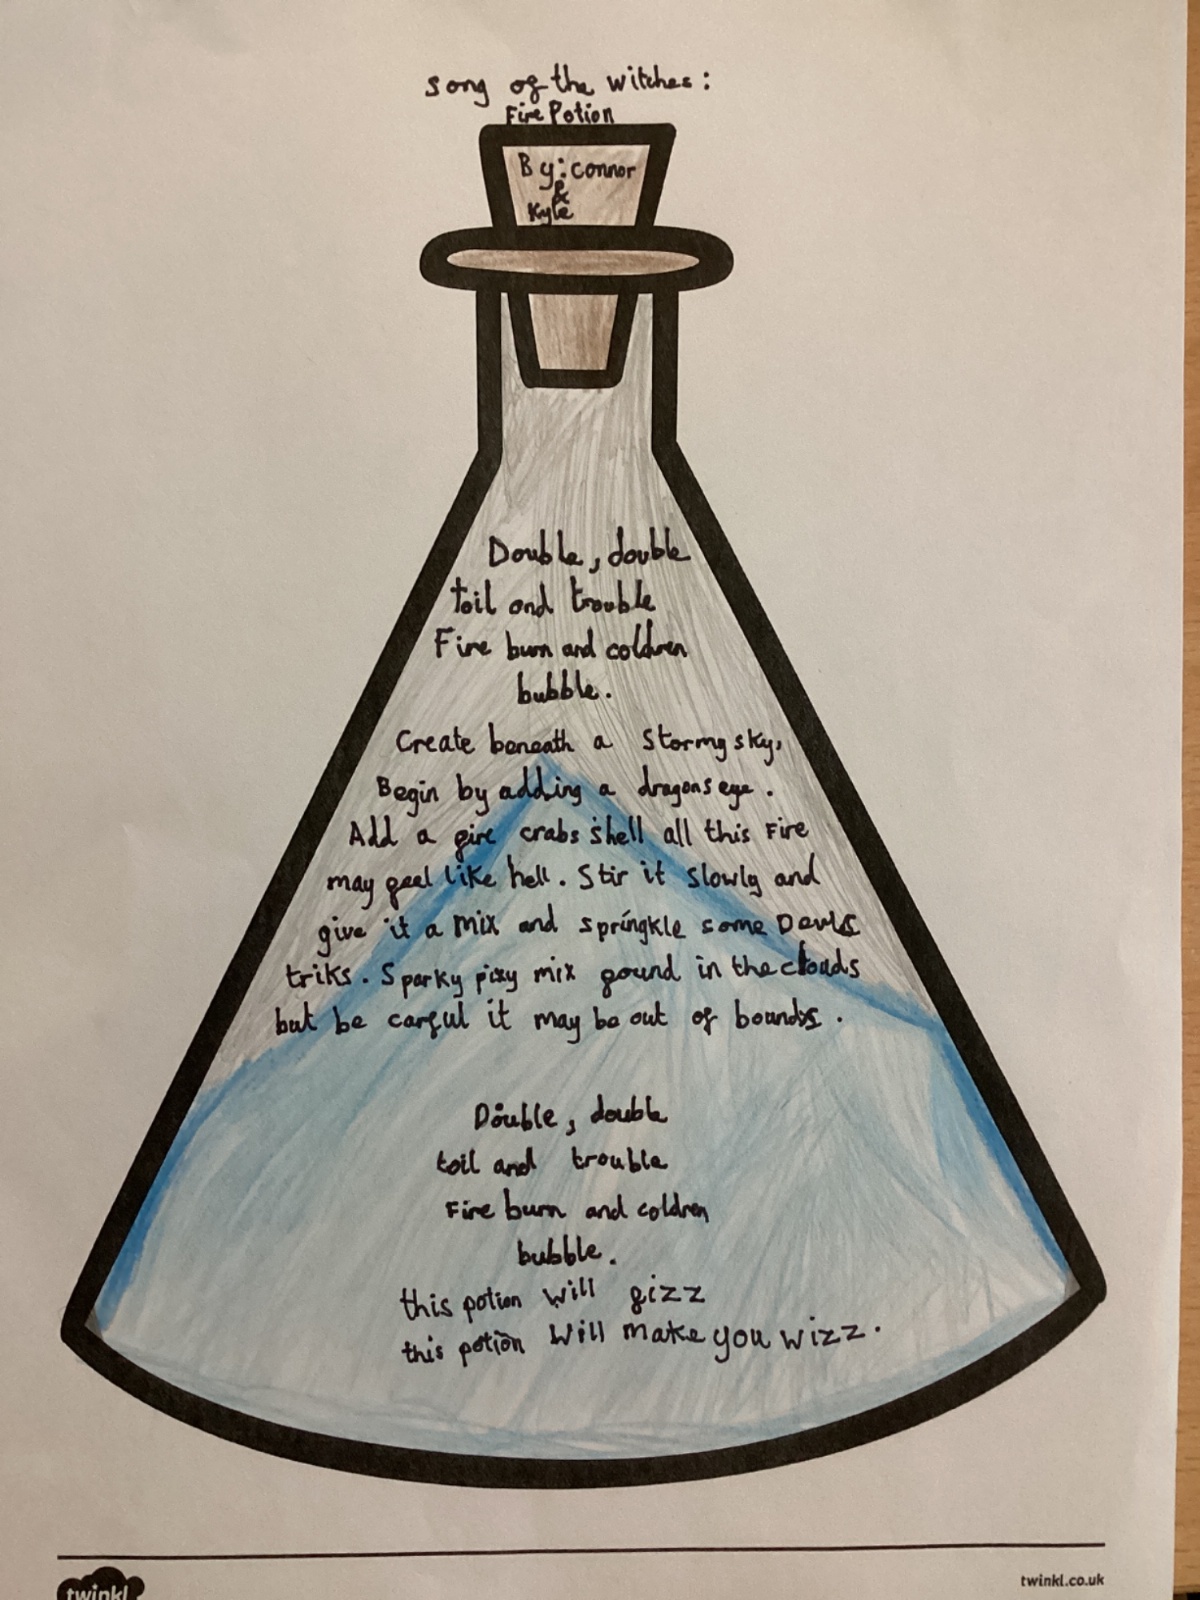 Song of the witches:
Fire Potion
By: connor
&
Kyle
Double, double
toil and trouble
Fire burn and coldren
bubble.
Create beneath a stormy sky,
Begin by adding a dragons eye.
Add a fire crabs shell all this Fire
may feel like hell. Stir it slowly and
give it a mix and springkle some Devils
triks. Sparky pixy mix found in the clouds
but be carful it may be out of bounds.
Double, double
toil and trouble
Fire burn and coldren
bubble.
this potion will fizz
this potion will make you wizz.
twinkl
twinkl.co.uk